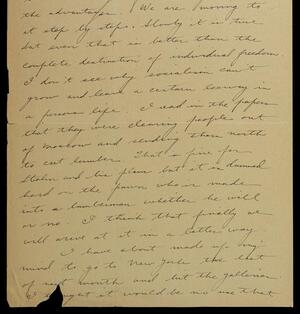 the advantages. We are moving to
it step by step. Slowly it is true
but even that is better than the
complete destruction of individual freedom
I don't see why socialism can't
grow and leave a certain leeway in
a persons life. I read in the papers
that they were clearing people out
of moscow and sending them north
to cut lumber. That's fine for
Stalin and his plans but it is damned
hard on the pawn who is made
into a lumberman whether he will
or no. I think that finally we
will arrive at it in a better way
I have about made up my
mind to go to New York the last
of next month and hit the galleries.
I thought it would be no use that